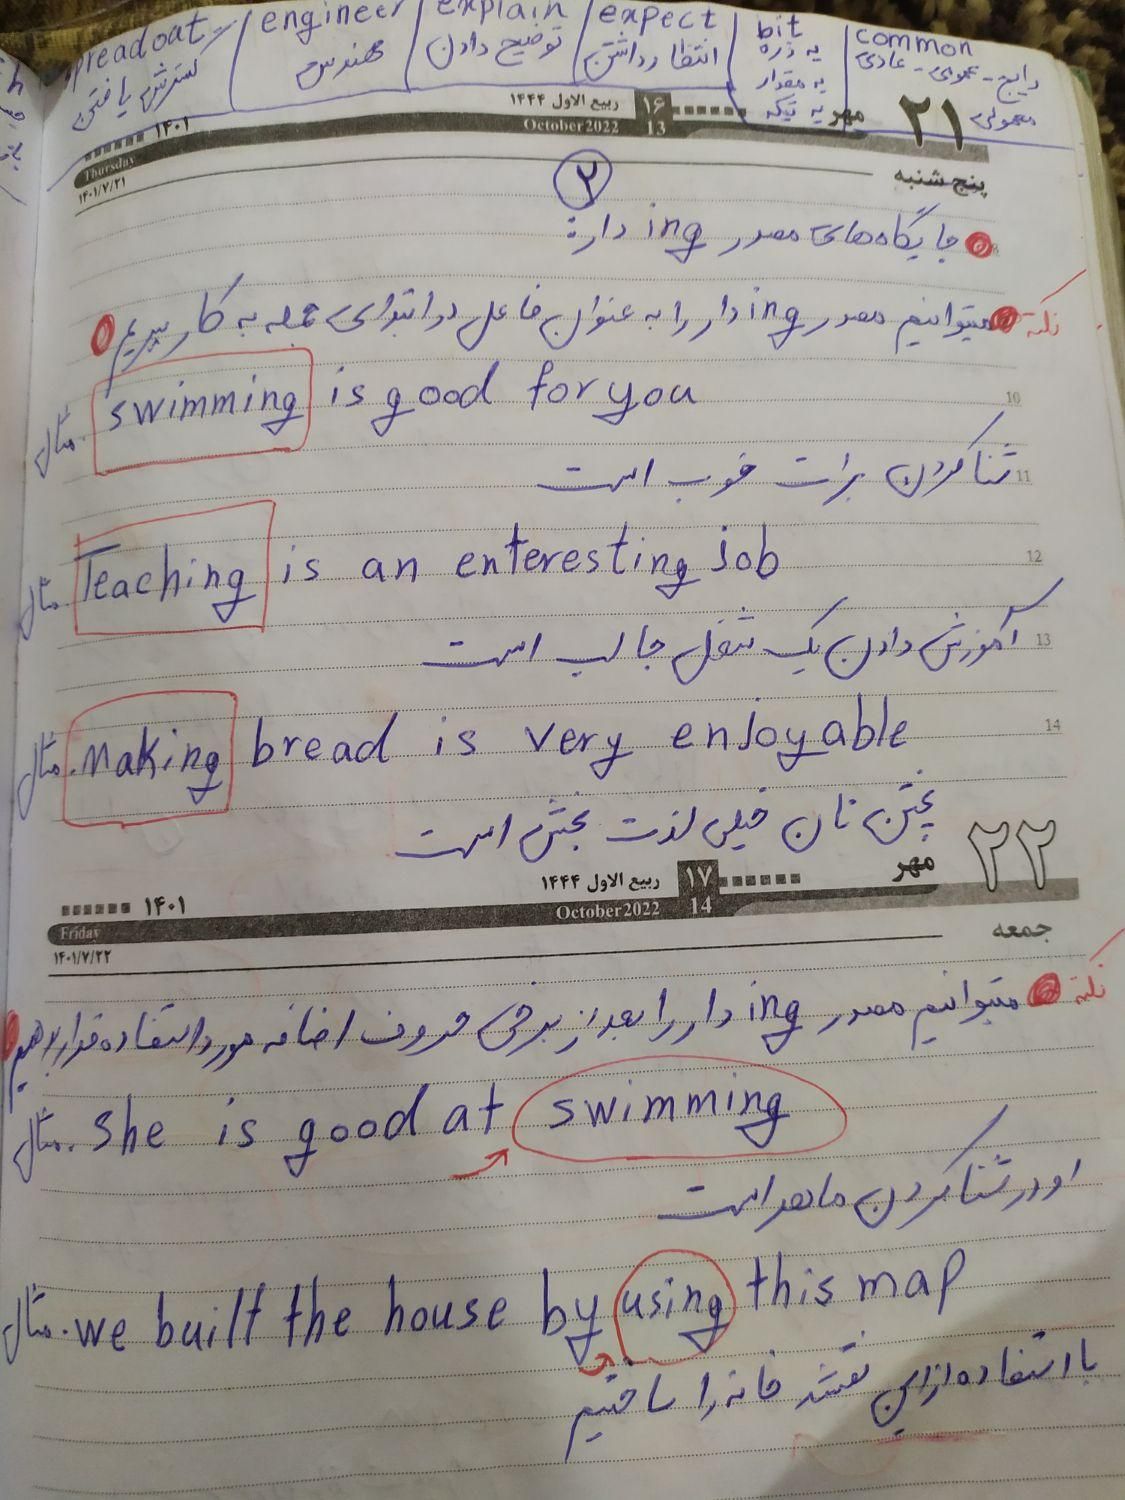 spreadout
گسترش یافتن
engineer
مهندس
explain
توضیح دادن
expect
انتظار داشتن
bit
یه ذره
یه مقدار
یه تیکه
common
رایج - عمومی - عادی
معمولی
۱۴۰۱ ربیع الاول ۱۴۴۴ ۱۶ مهر ۲۱
Thursday October 2022 13
۱۴۰۱/۷/۲۱ پنج شنبه
۲
جایگاه‌های مصدر ing دار:
نکته میتوانیم مصدر ing دار را به عنوان فاعل در ابتدای جمله به کار ببریم
مثال. swimming is good for you
10
شنا کردن برات خوب است
11
مثال. Teaching is an enteresting job
12
آموزش دادن یک شغل جالب است
13
مثال. Making bread is very enjoyable
14
پختن نان خیلی لذت بخش است
۱۴۰۱ ربیع الاول ۱۴۴۴ ۱۷ مهر ۲۲
Friday October 2022 14
۱۴۰۱/۷/۲۲ جمعه
نکته میتوانیم مصدر ing دار را بعد از برخی حروف اضافه مورد استفاده قرار بدهیم
مثال. she is good at swimming
او در شنا کردن ماهر است
مثال. we built the house by using this map
با استفاده از این نقشه خانه را ساختیم